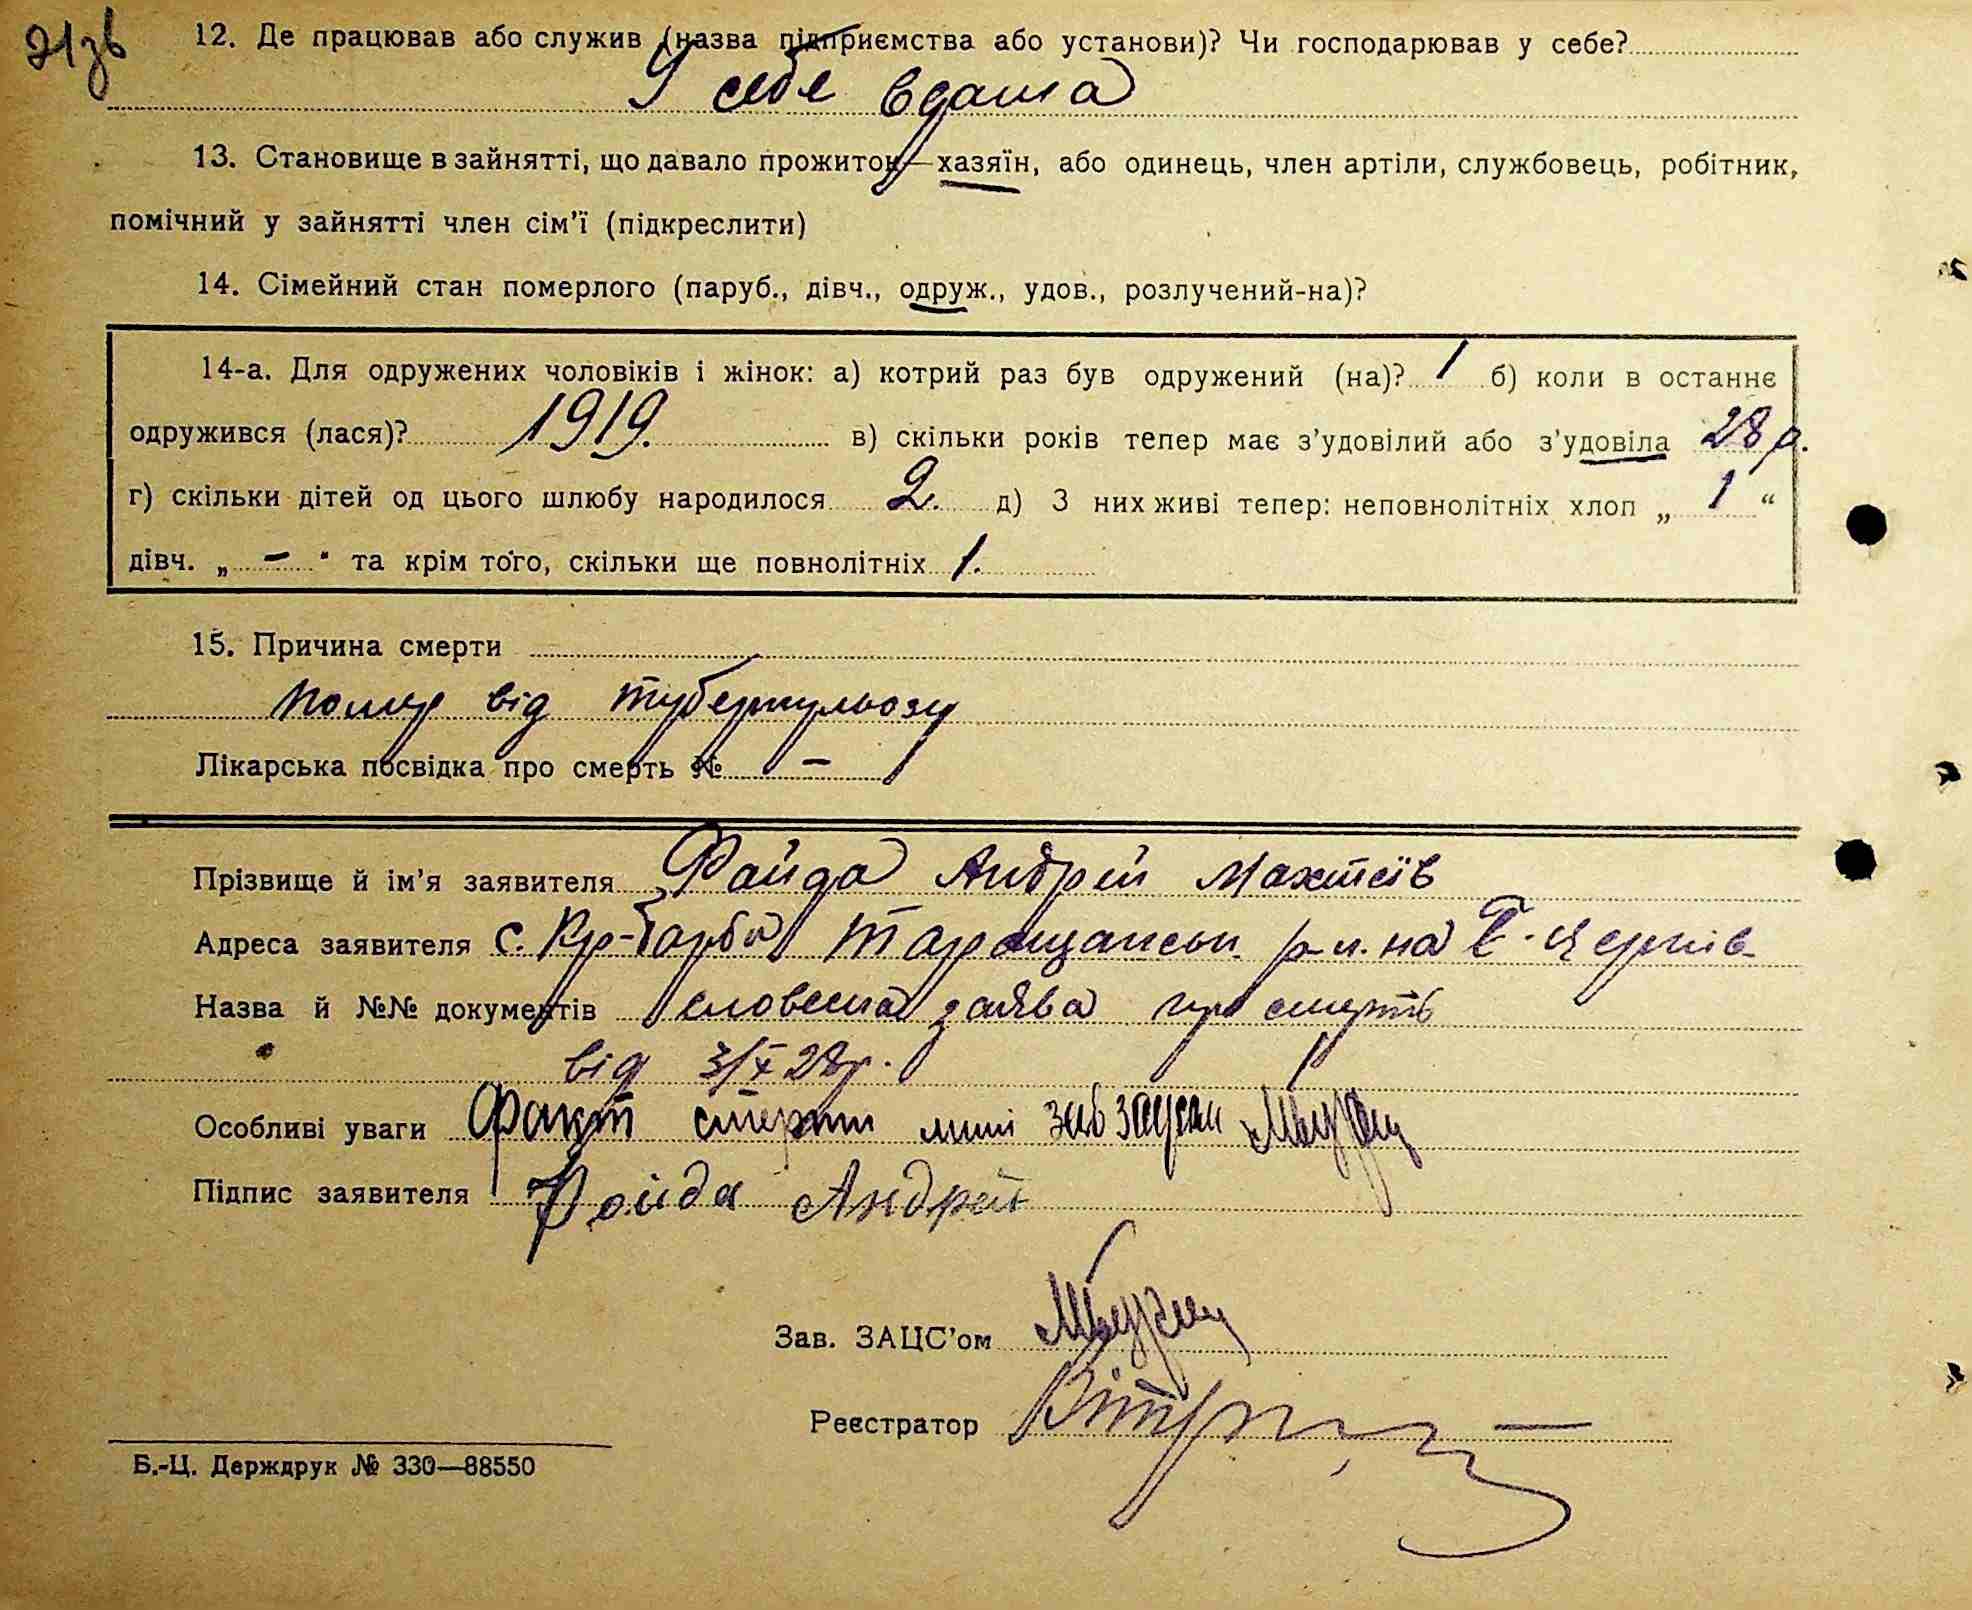 21зв
12. Де працював або служив (назва підприємства або установи)? Чи господарював у себе?
У себе вдома
13. Становище в зайнятті, що давало прожиток—хазяїн, або одинець, член артіли, службовець, робітник,
помічний у зайнятті член сім’ї (підкреслити)
14. Сімейний стан померлого (паруб., дівч., одруж., удов., розлучений-на)?
14-а. Для одружених чоловіків і жінок: а) котрий раз був одружений (на)? 1 б) коли в останнє
одружився (лася)? 1919. в) скільки років тепер має з’удовілий або з’удовіла 28 р.
г) скільки дітей од цього шлюбу народилося 2. д) З них живі тепер: неповнолітніх хлоп „ 1 “
дівч. „ – “ та крім того, скільки ще повнолітніх 1.
15. Причина смерти
помер від туберкульозу
Лікарська посвідка про смерть № –
Прізвище й ім’я заявителя Файда Андрій Махтеїв
Адреса заявителя с. Кр-Барби Таращанськ. р-н. на Б-Церків-
Назва й №№ документів словесна заява про смерть
від 3/X 28р.
Особливі уваги Факт смерти
Підпис заявителя Файда Андрей
Зав. ЗАЦС’ом
Реєстратор
Б.-Ц. Держдрук № 330—88550